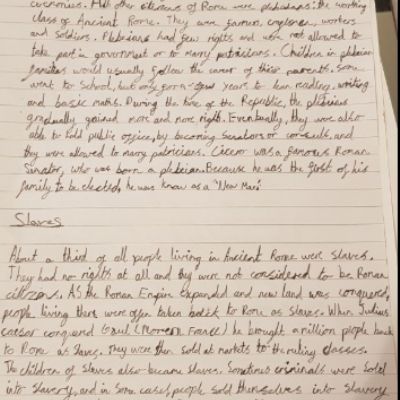 ceremonies. All other citizens of Rome were plebeians: the working
class of Ancient Rome. They were farmers, craftsmen, workers
and soldiers. Plebeians had few rights and were not allowed to
take part in government or to marry patricians. Children in plebeian
families would usually follow the career of their parents. Some
went to School, but only for a few years to learn reading, writing
and basic maths. During the time of the Republic, the plebeians
gradually gained more and more rights. Eventually, they were also
able to hold public office, by becoming Senators or consuls, and
they were allowed to marry patricians. Cicero was a famous Roman
Senator, who was born a plebeian. Because he was the first of his
family to be elected, he was know as a "New Man"
Slaves
About a third of all people living in Ancient Rome were slaves.
They had no rights at all and they were not considered to be Roman
citizens. As the Roman Empire expanded and new land was conquered,
people living there were often taken back to Rome as slaves. When Julius
caesar conquered Gaul (Modern France) he brought a million people back
to Rome as slaves. They were then sold at markets to the ruling classes.
The children of slaves also became slaves. Sometimes criminals were sold
into slavery, and in some cases, people sold themselves into slavery